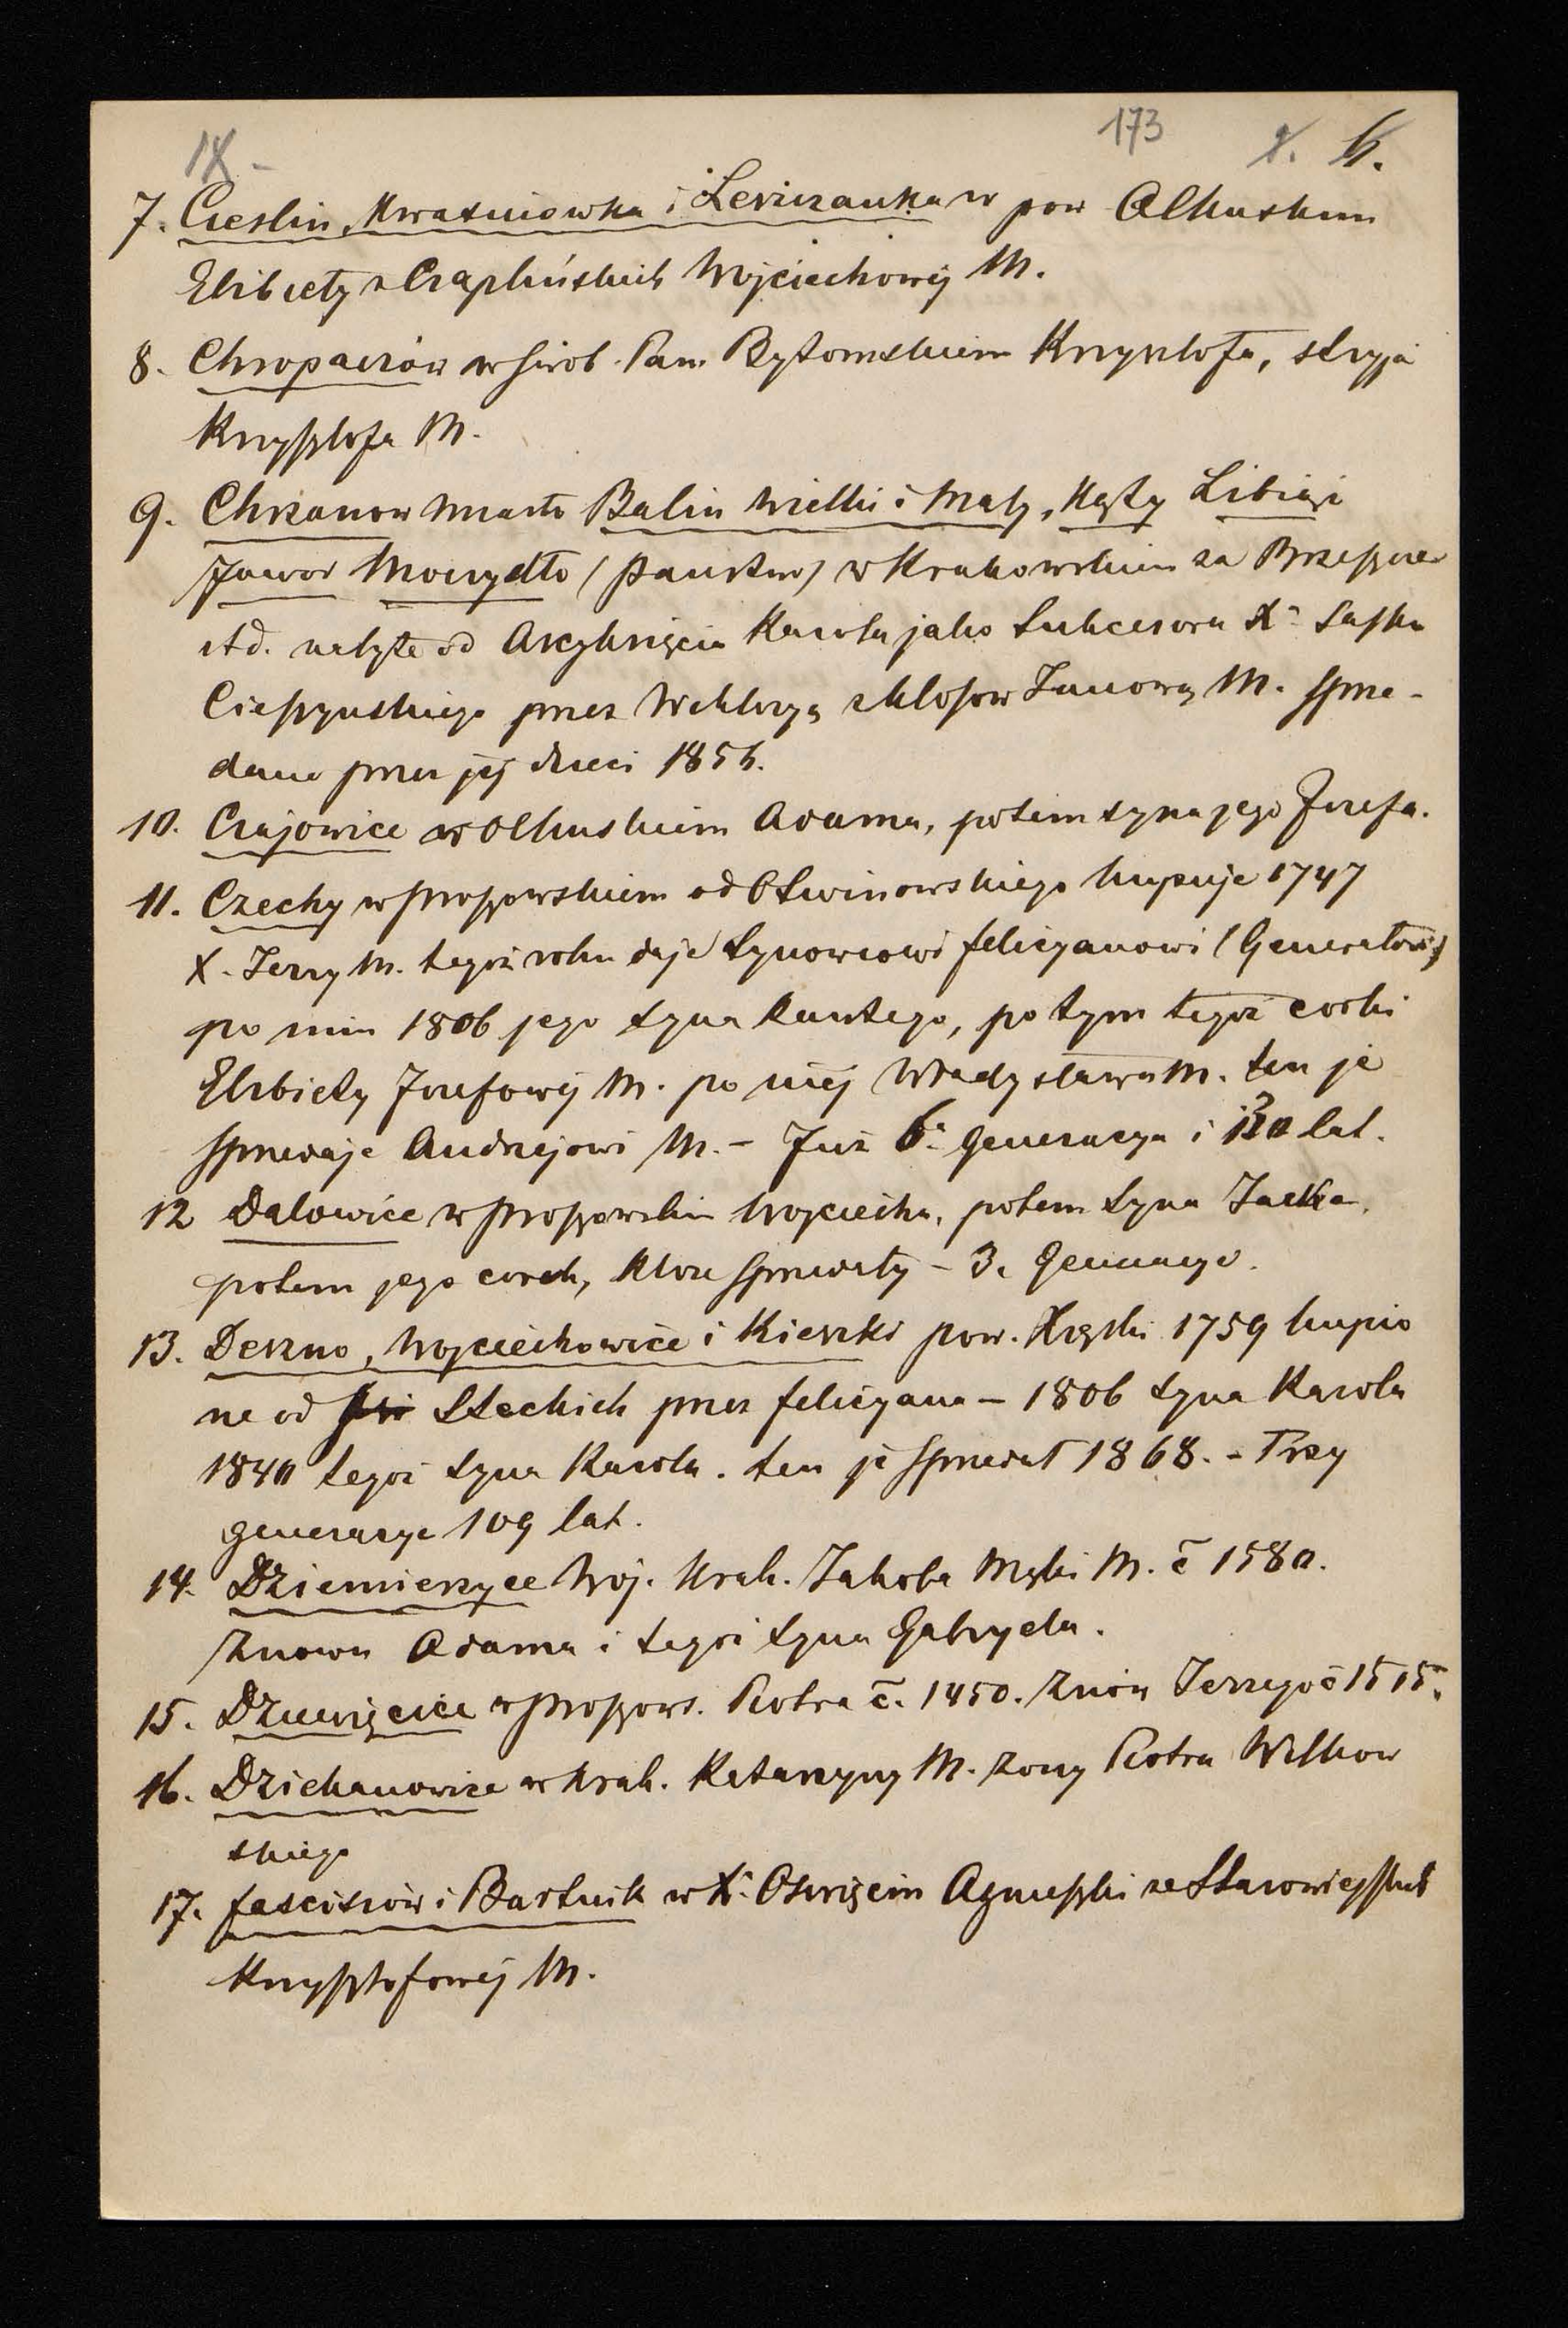 173
7. Cieslin, Kwasniowka i Lewiczanka w pow Olkuskim
Elżbiety z Czaplińskich Wojciechowej M.
8. Chropaczów w Pan. Bytomskiem Krzysztofa, stryja
Krzysztofa M.
9. Chrzanow miasto Balin wielki i mały, Kąty Libiąż
Jawor Moczydło (Państwo) w Krakowskiem za Brzeszcze
itd. nabyte od Arcyksięcia Karola jako Sukcesora X. Sasko
Cieszyńskiego przez Wiktoryą z Kłosow Janową M. sprze-
dane przez jej dzieci 185
10. Czajowice w Olkuskiem Adama, potem syna jego Jozefa.
11. Czechy w Proszowskiem od Otwinowskiego kupuje 1747
X. Jerzy M. tegoż roku daje Synowcowi Felicyanowi (Generałowi)
po nim 1806 jego syna Kantego, po tym tegoż corki
Elżbiety Jozefowej M. po niej Władysława M. ten je
sprzedaje Andrzejowi M. – Już 6. generacya i 130 lat.
12 Dalowice w Proszowskim Wojciecha, potem syna Jacka,
potem jego corek, ktore sprzedały – 3. Generacye.
13. Deszno, Wojciechowice i Kieszki pow. Xiązki 1759 kupio
ne od Steckich przez Felicyana – 1806 syna Karola
1840 tegoż syna Karola. ten je sprzedał 1868. – Trzy
generacye 109 lat.
14. Dziemierzyce Woj. Krak. Jakoba Męki M. č 1580.
Znowu Adama i tegoż syna Gabryela.
15. Dziewięcice w Proszows. Piotra č. 1450. Znów Jerzego č 1515.
16. Dziekanowice w Krak. Katarzyny M. żony Piotra Wilkow
skiego
17. Fasciszów i Bartnik w X. Oswięcim Agnieszki ze Starowieyskich
Krzysztofowej M.